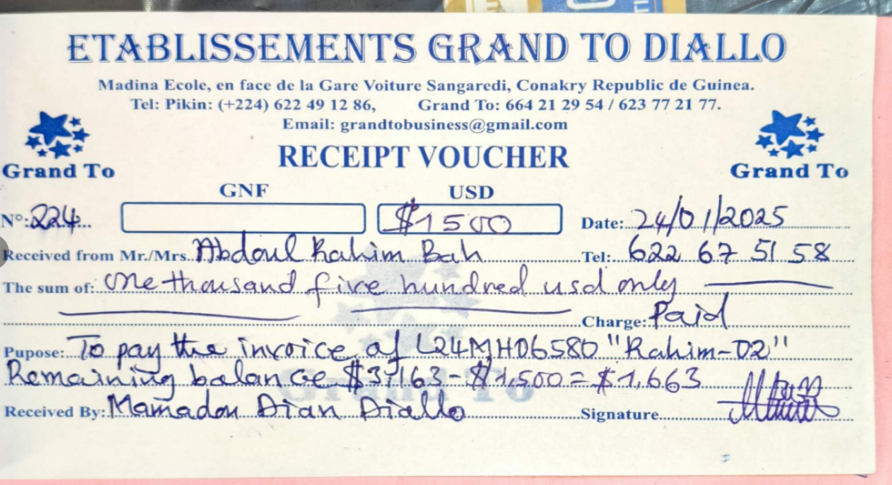 ETABLISSEMENTS GRAND TO DIALLO
Madina Ecole, en face de la Gare Voiture Sangaredi, Conakry Republic de Guinea.
Tel: Pikin: (+224) 622 49 12 86, Grand To: 664 21 29 54 / 623 77 21 77.
Email: grandtobusiness@gmail.com
Grand To RECEIPT VOUCHER Grand To
GNF USD
N°: 224 $1500 Date: 24/01/2025
Received from Mr./Mrs. Abdoul Rahim Bah Tel: 622 67 51 58
The sum of: one thousand five hundred usd only
Charge: Paid
Pupose: To pay the invoice of L24MH06580 "Rahim-02"
Remaining balance $3,163-$1,500=$1,663
Received By: Mamadou Dian Diallo Signature